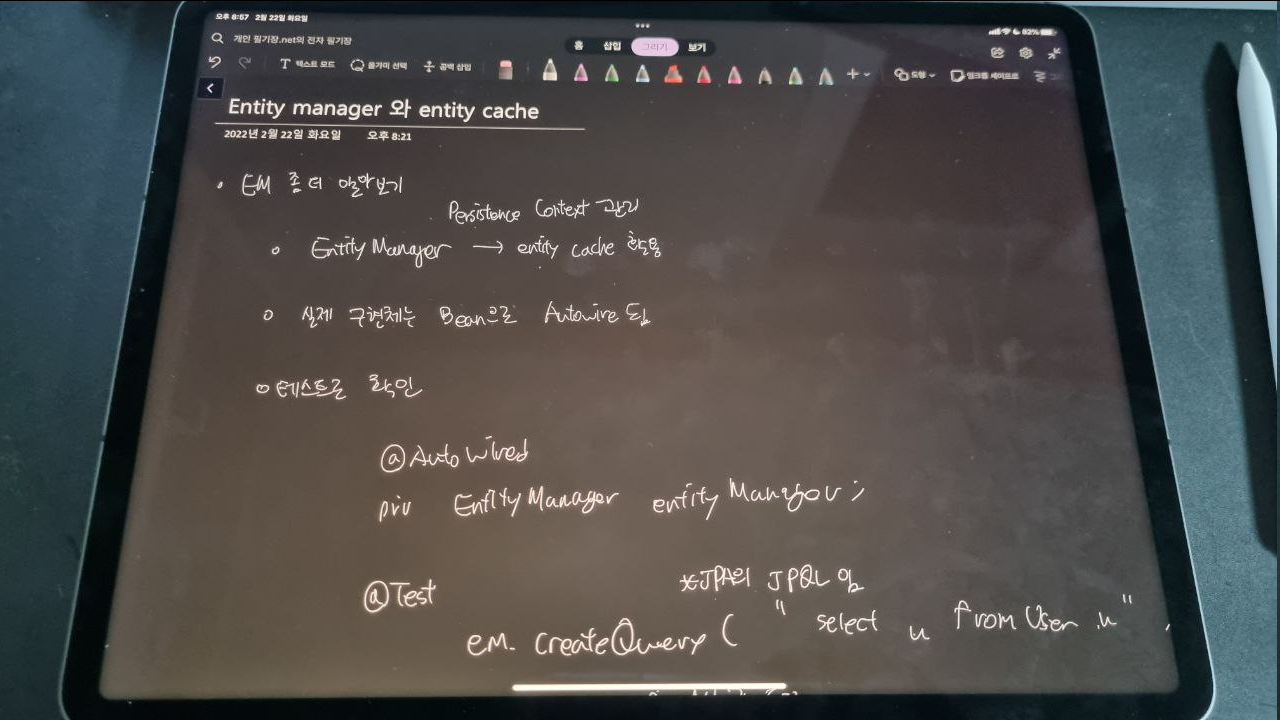 오후 8:57 2월 22일 화요일
82%
개인 필기장.net의 전자 필기장
홈 삽입 그리기 보기
텍스트 모드 올가미 선택 공백 삽입 도형 잉크를 셰이프로
Entity manager 와 entity cache
2022년 2월 22일 화요일 오후 8:21
EM 좀 더 알아보기
Persistence Context 관리
Entity Manager → entity cache 활용
실제 구현체는 Bean으로 Autowire 됨
테스트로 확인
@AutoWired
priv EntityManager entityManager;
@Test
*JPA의 JPQL 임
em. createQuery ( " select u from User u" ,